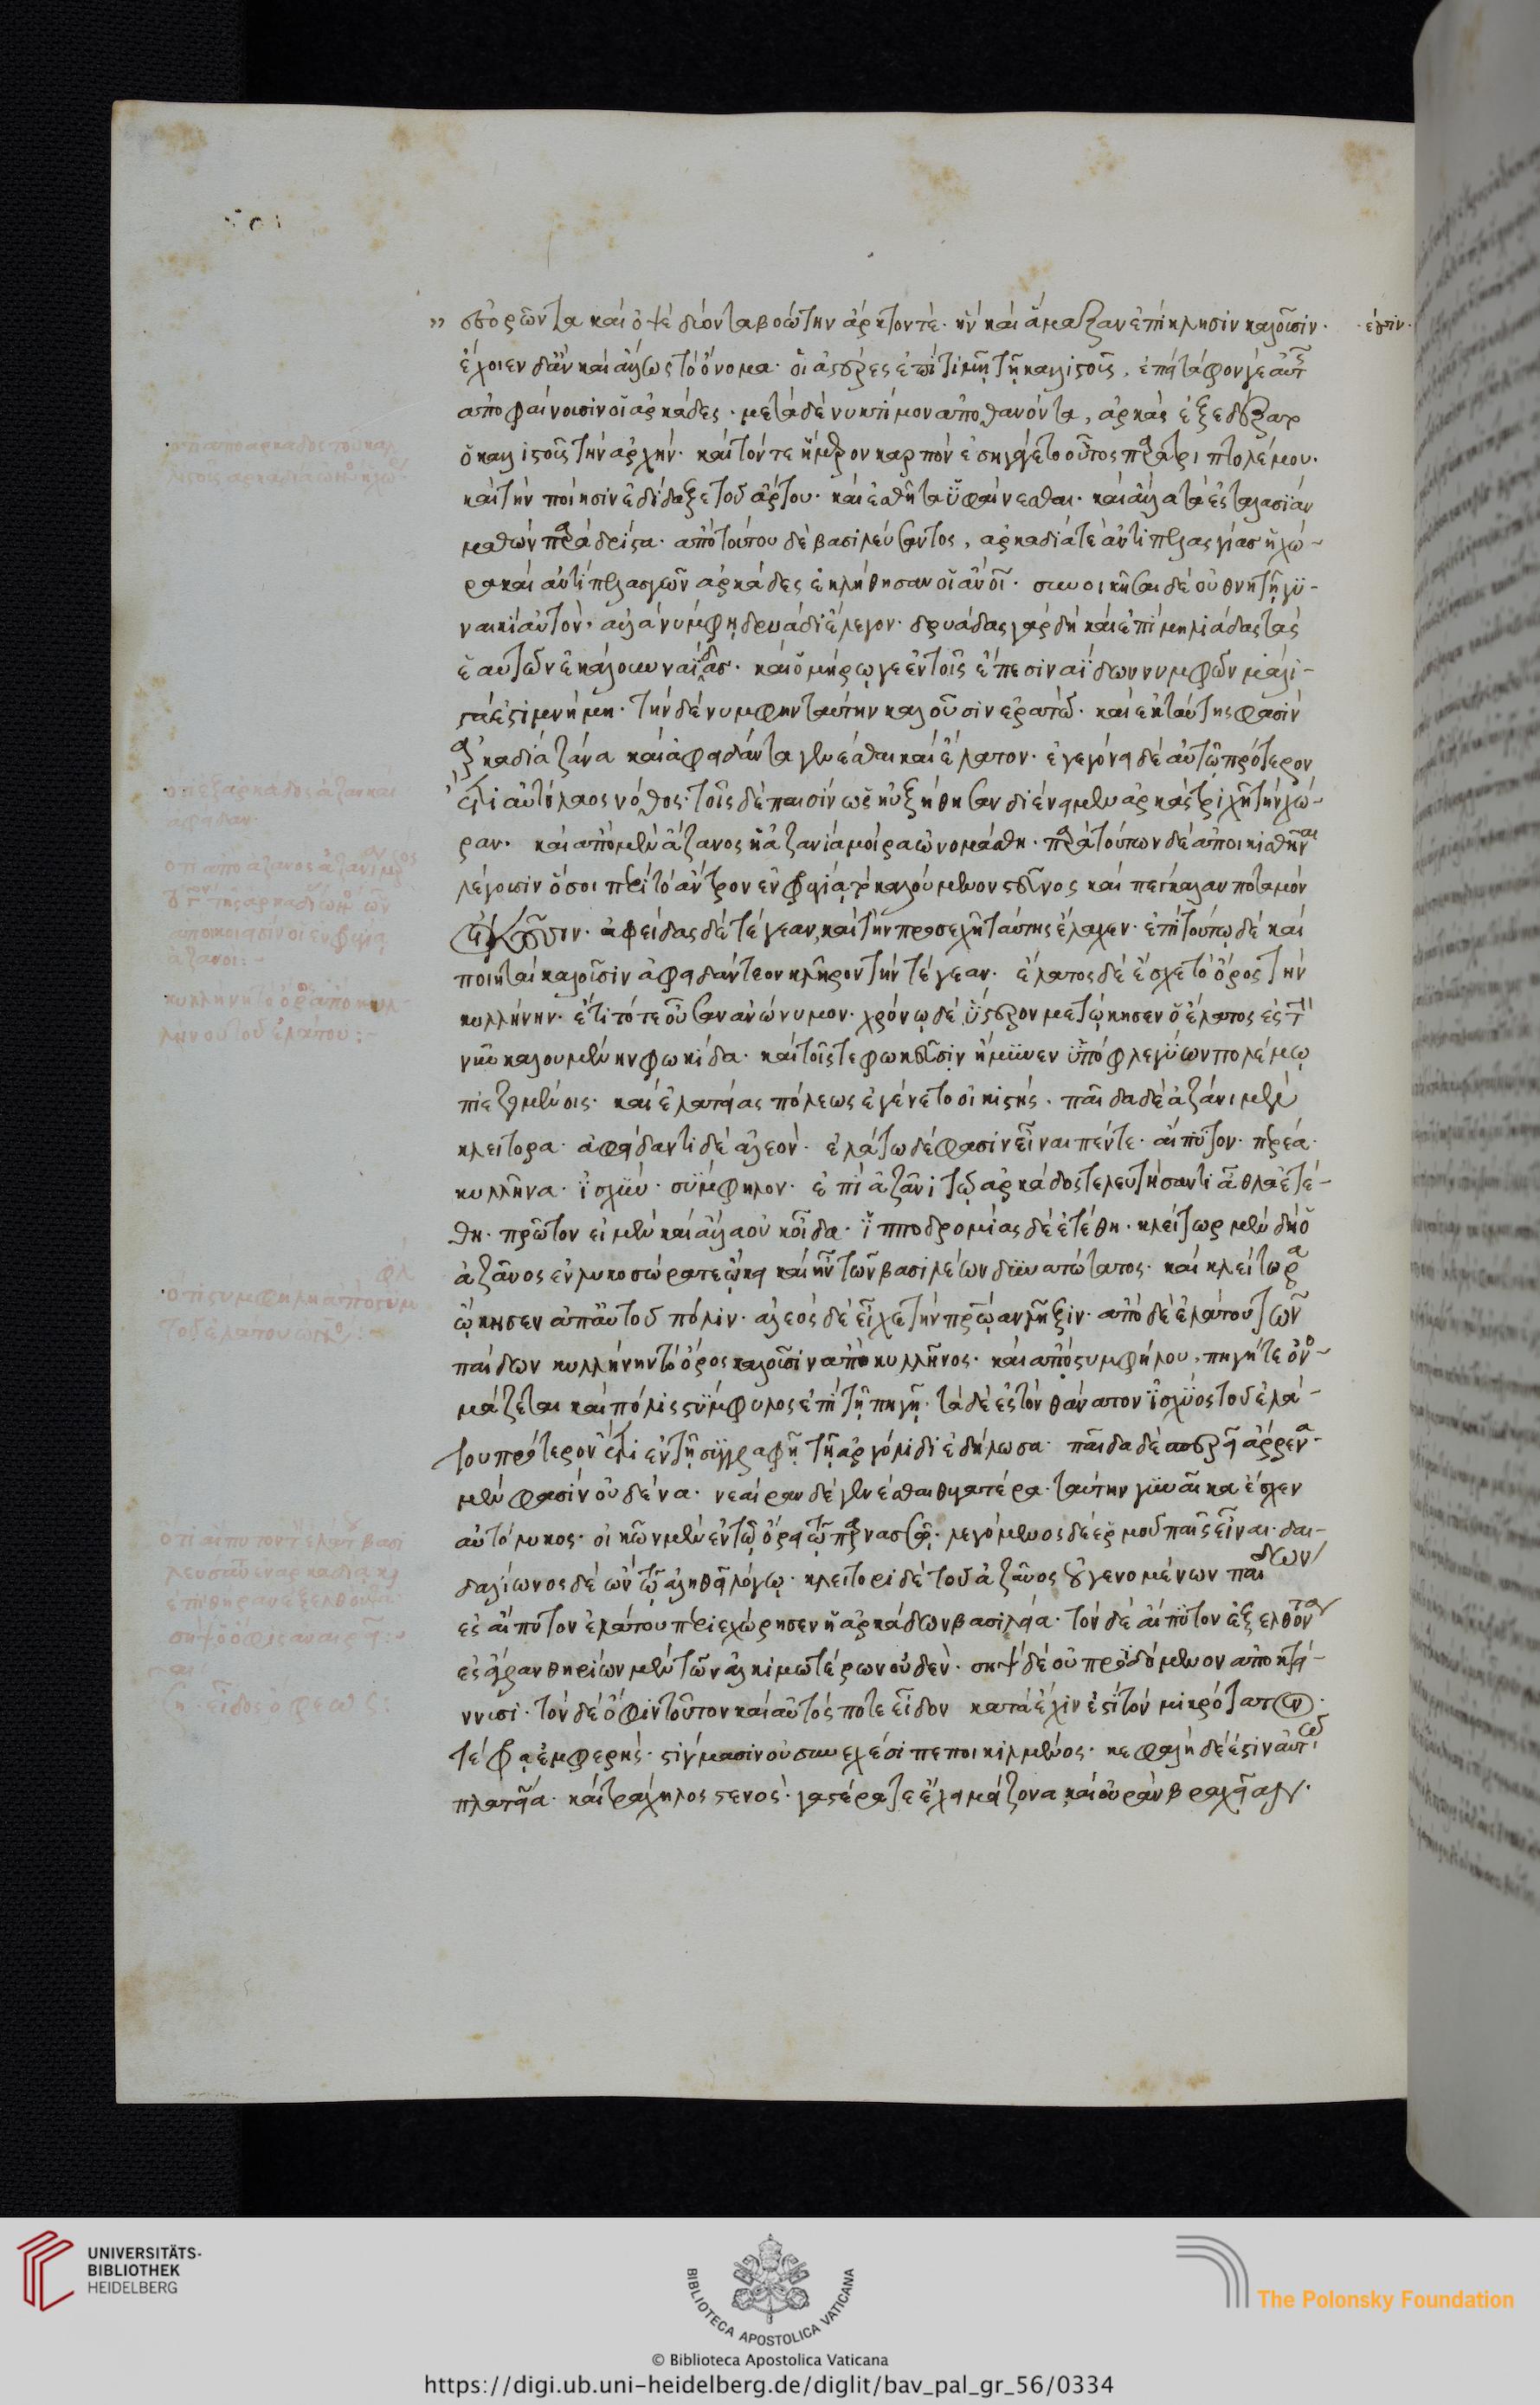 " ἐσορῶντα καὶ ὀψὲ δύοντα βοώτην ἄρκτον τὲ· ἣν καὶ ἄμαξαν ἐπίκλησιν καλοῦσιν·
ἔχοιεν δ' ἂν καὶ ἄλλως τὸ ὄνομα· οἱ ἀστέρες ἐπὶ τιμῆ τῆ καλλιστοῦς, ἐπεὶ τάφον γε αὐτῆς
ἀποφαίνουσιν οἱ ἀρκάδες· μετὰ δὲ νυκτίμον ἀποθανόντα, ἀρκὰς ἐξεδέξατο
ὁ καλλιστοῦς τὴν ἀρχήν· καὶ τόν τε ἥμερον καρπὸν ἐσηγάγετο οὗτος παρὰ τριπτολέμου·
καὶ τὴν ποίησιν ἐδίδαξε τοῦ ἄρτου· καὶ ἐσθῆτα ὑφαίνεσθαι· καὶ ἄλλα τὰ ἐς ταλασίαν
μαθὼν παρὰ δρίστα· ἀπὸ τούτου δὲ βασιλεύσαντος, ἀρκαδία τε ἀντὶ πελασγίας ἡ χώ-
ρα καὶ ἀντὶ πελασγῶν ἀρκάδες ἐκλήθησαν οἱ ἄνοι· συνοικῆσαι δὲ οὐ θνητῆ γυ-
ναικὶ αὐτὸν, ἀλλὰ νύμφη δρυάδι ἔλεγον· δρυάδας γὰρ δὴ καὶ ἐπιμηλιάδας τὰς
ἑαυτῶν ἐκάλουν ναϊδας· καὶ ὁμήρω γε ἐν τοῖς ἔπεσι ναΐδων νυμφῶν μάλι-
στά ἐστι μνήμη· τὴν δὲ νύμφην ταύτην καλοῦσιν ἐρατώ· καὶ ἐκ ταύτης φασὶν
ἀρκάδι ἀζάνα καὶ ἀφείδαντα γενέσθαι καὶ ἔλατον· ἐγεγόνει δὲ αὐτῶ πρότερον
ἔτι αὐτόλαος νόθος· τοῖς δὲ παισὶν ὡς ηὐξήθησαν διένειμεν ἀρκὰς τριχῆ τὴν χώ-
ραν· καὶ ἀπὸ μὲν ἀζᾶνος ἡ ἀζανία μοῖρα ὠνομάσθη· παρὰ τούτων δὲ ἀποικισθῆναι
λέγουσιν ὅσοι περὶ τὸ ἄντρον ἐν φρυγία τὸ καλούμενον στεῦνος καὶ πεγκάλαν ποταμὸν
οἰκοῦσιν· ἀφείδας δὲ τέγεαν, καὶ τὴν προσεχῆ ταύτης ἔλαχεν· ἐπὶ τούτω δὲ καὶ
ποιηταὶ καλοῦσιν ἀφειδάντεον κλῆρον τὴν τέγεαν· ἔλατος δὲ ἔσχε τὸ ὄρος τὴν
κυλλήνην· ἔτι τότε οὖσαν ἀνώνυμον· χρόνω δὲ ὕστερον μετώκησεν ὁ ἔλατος ἐς τὴν
νῦν καλουμένην φωκίδα· καὶ τοῖς τε φωκεῦσιν ἤμυνεν ὑπὸ φλεγυῶν πολέμω
πιεζομένοις· καὶ ἐλατείας πόλεως ἐγένετο οἰκιστής· παῖδα δὲ ἀζᾶνι μὲν
κλείτορα· ἀφείδαντι δὲ ἀλεόν· ἐλάτω δέ φασιν εἶναι πέντε· αἴπυτον· περέα·
κυλλῆνα· ἰσχύν· στύμφηλον· ἐπὶ ἀζᾶνι τῶ ἀρκάδος τελευτήσαντι ἆθλα ἐτέ-
θη· πρῶτον εἰ μὲν καὶ ἄλλα οὐκ οἶδα· ἱπποδρομίας δὲ ἐτέθη· κλείτωρ μὲν δὴ ὁ
ἀζᾶνος ἐν λυκοσώρα τε ὤκει καὶ ἦν τῶν βασιλέων δυνατώτατος· καὶ κλείτορα
ὤκησεν ἀπ' αὐτοῦ πόλιν· ἀλεὸς δὲ εἶχε τὴν πρώαν λῆξιν· ἀπὸ δὲ ἐλάτου τῶν
παίδων κυλλήνην τὸ ὄρος καλοῦσιν ἀπὸ κυλλῆνος· καὶ ἀπὸ στυμφήλου, πηγή τε ὀνο-
μάζεται καὶ πόλις στύμφυλος ἐπὶ τῆ πηγῆ· τὰ δὲ ἐς τὸν θάνατον ἴσχυος τοῦ ἐλά-
του πρότερον ἔτι ἐν τῆ συγγραφῆ τῆ ἀργόλιδι ἐδήλωσα· παῖδα δὲ περεῖ ἄρρενα
μὲν φασὶν οὐδένα· νεαίραν δὲ γενέσθαι θυγατέρα· ταύτην γυναῖκα ἔσχεν
αὐτόλυκος· οἰκῶν μὲν ἐν τῶ ὄρει τῶ παρνασσῶ· λεγόμενος δὲ ἑρμοῦ παῖς εἶναι· δαι-
δαλίωνος δὲ ὢν τῶ ἀληθεῖ λόγω· κλείτορι δὲ τοῦ ἀζᾶνος οὐ γενομένων παίδων
ἐς αἴπυτον ἐλάτου περιεχώρησεν ἡ ἀρκάδων βασιλεία· τὸν δὲ αἴπυτον ἐξελθόντα
ἐς ἄγραν θηρίων μὲν τῶν ἀλκιμωτέρων οὐδέν· σὴψ δὲ οὐ προϊδόμενον ἀποκτεί-
ννυσι· τὸν δὲ ὄφιν τοῦτον καὶ αὐτός ποτε εἶδον κατὰ ἔχιν ἐστὶ τὸν μικρότατον·
τέφρα ἐμφερής· στίγμασιν οὐ συνεχέσι πεποικιλμένος· κεφαλὴ δέ ἐστιν αὐτῶ
πλατεῖα· καὶ τράχηλος στενός· γαστέρα τε ἔχει μείζονα καὶ οὐρὰν βραχεῖαν·
UNIVERSITÄTS-
BIBLIOTHEK
HEIDELBERG
BIBLIOTECA APOSTOLICA VATICANA
The Polonsky Foundation
© Biblioteca Apostolica Vaticana
https://digi.ub.uni-heidelberg.de/diglit/bav_pal_gr_56/0334